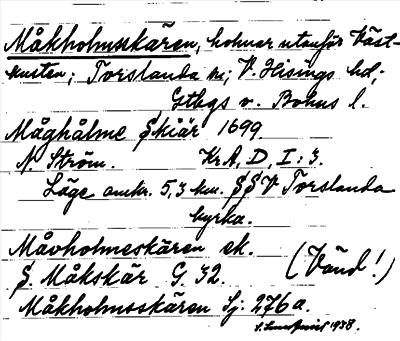 Måkholmsskären, holmar utanför Väst-
kusten; Torslanda sn; V. Hisings hd;
Gtbgs o. Bohus l.
Måghålme Skiär 1699
N. Ström. Kr.A, D, I:3.
Läge omkr. 5,3 km. SSV Torslanda
kyrka.
Måvholmeskären ek.
S. Måkskär G. 32. (Vänd!)
Måkholmsskären Sj. 276 a.
1938.